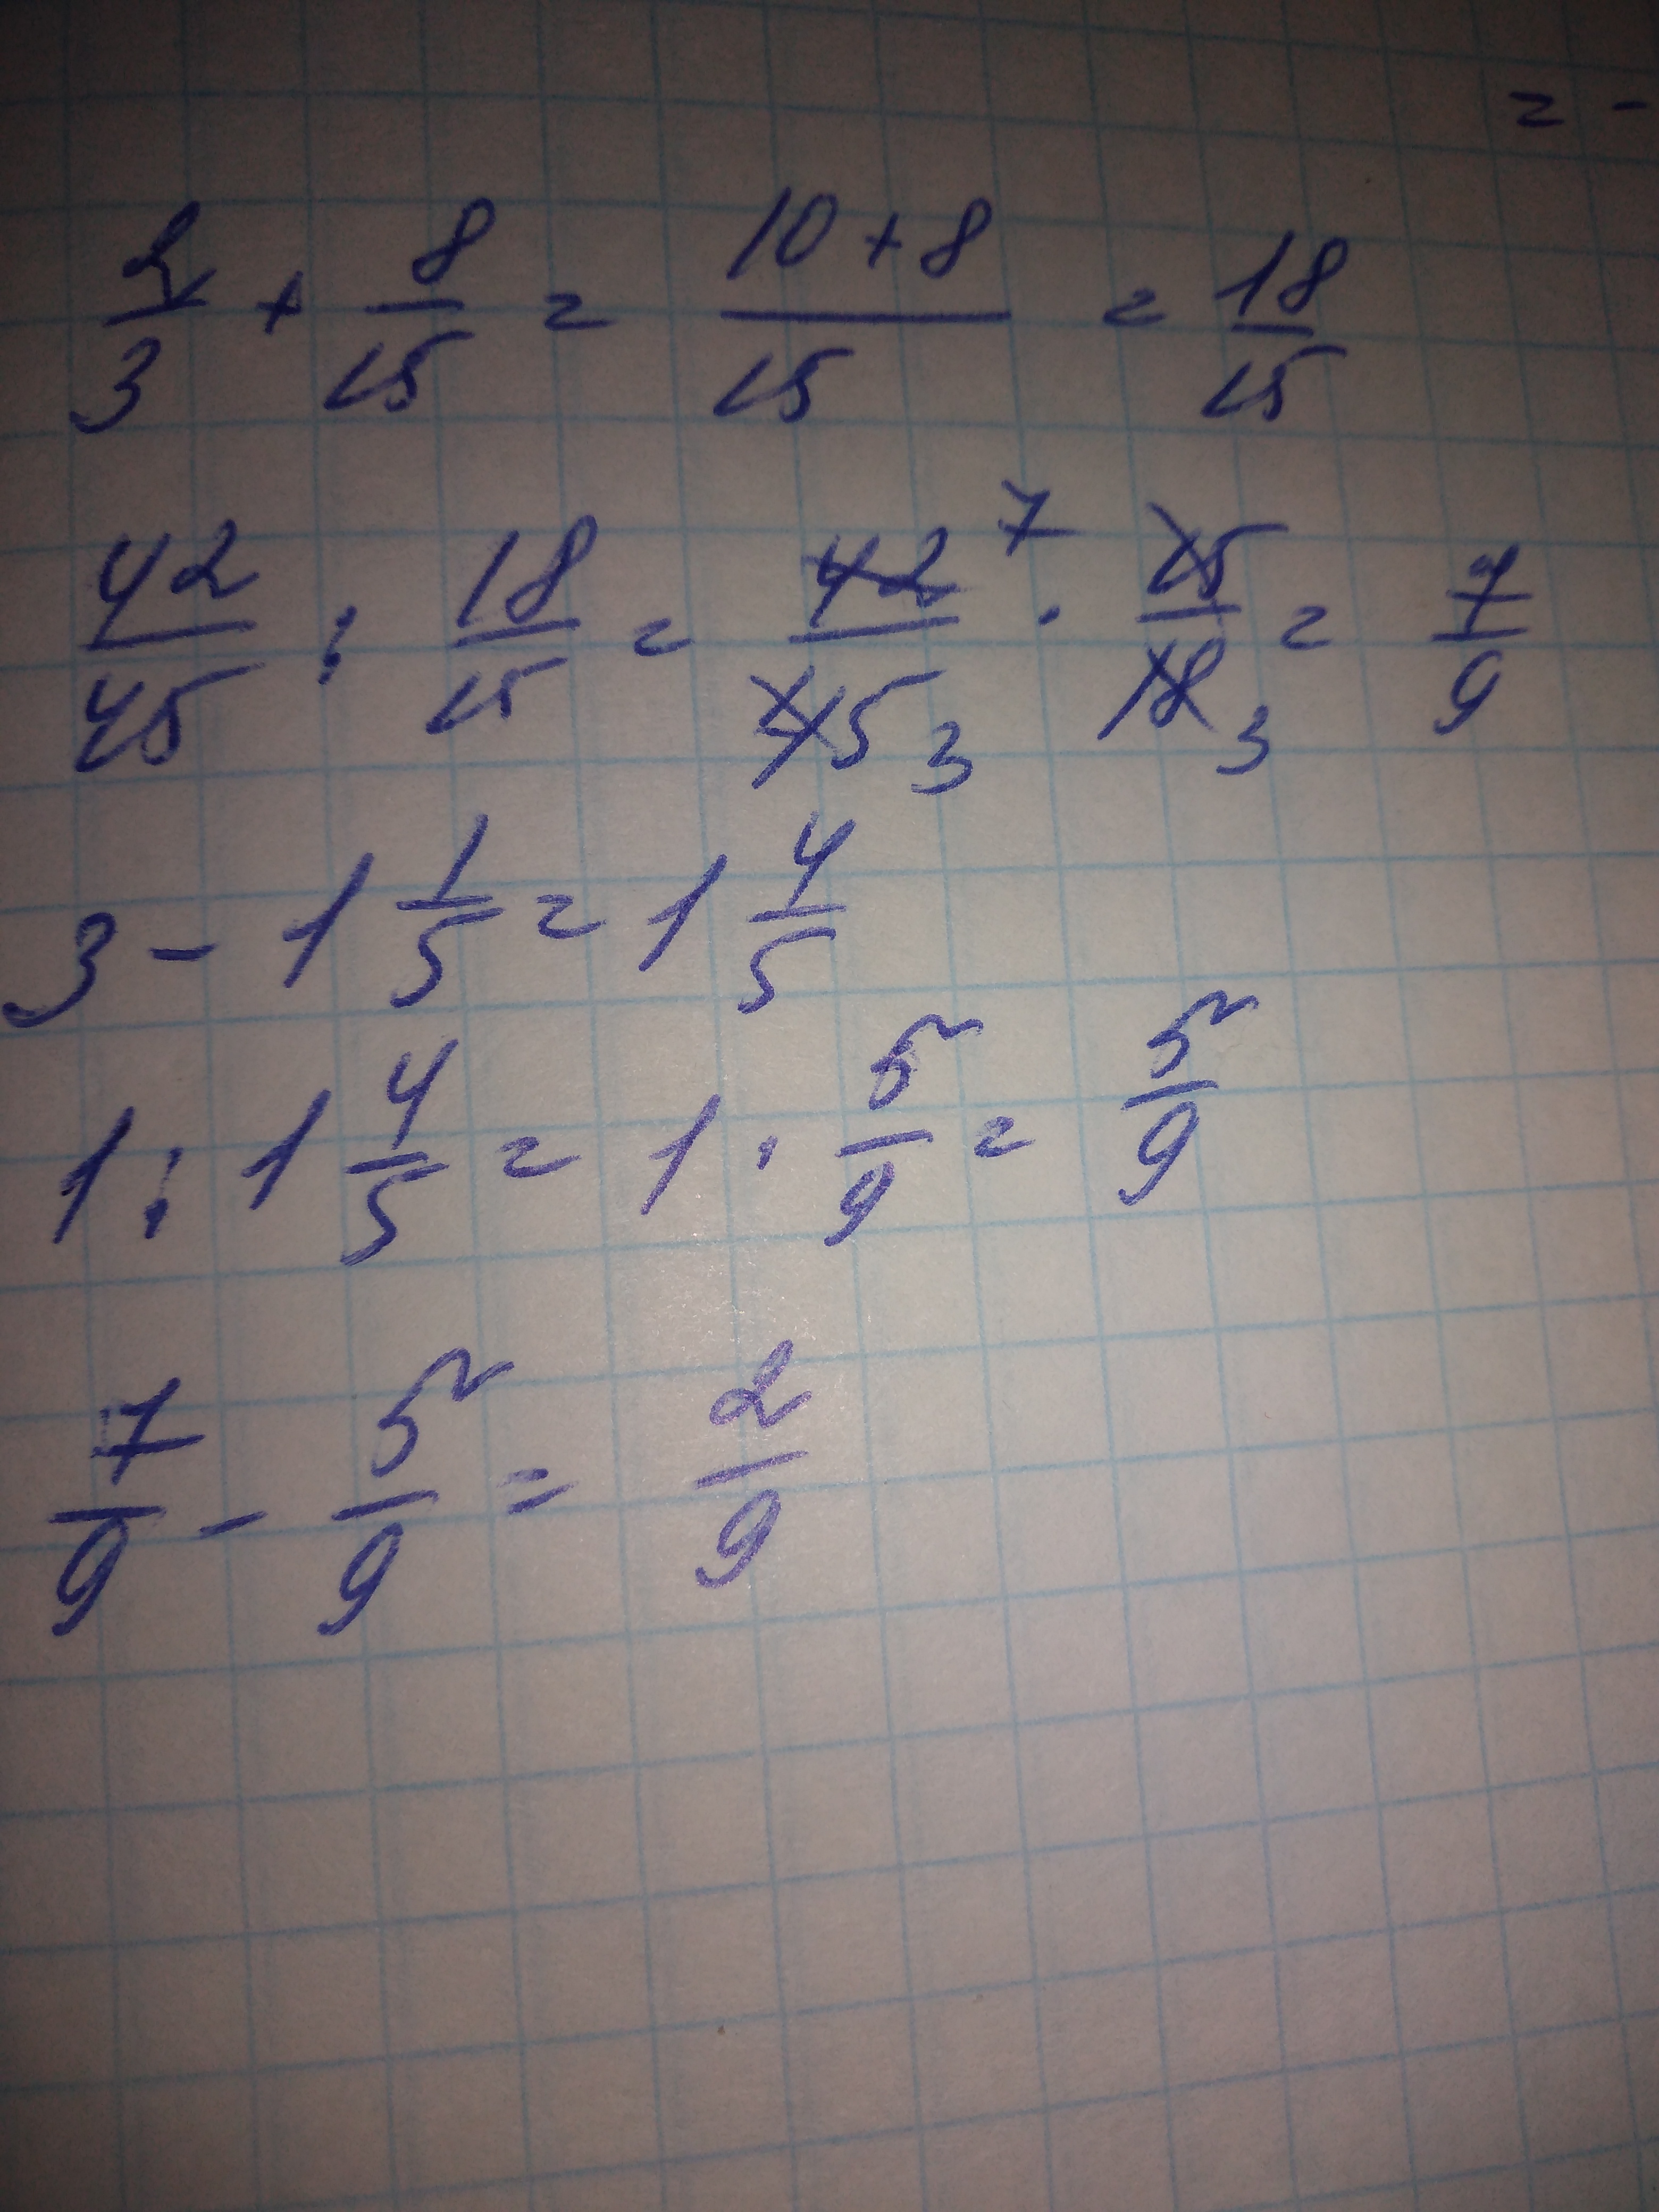 = -
2/3 + 8/15 = 10+8/15 = 18/15
42/45 : 18/15 = 42 7/45 3 · 15/18 3 = 7/9
3 - 1 1/5 = 1 4/5
1 : 1 4/5 = 1 · 5/9 = 5/9
7/9 - 5/9 = 2/9